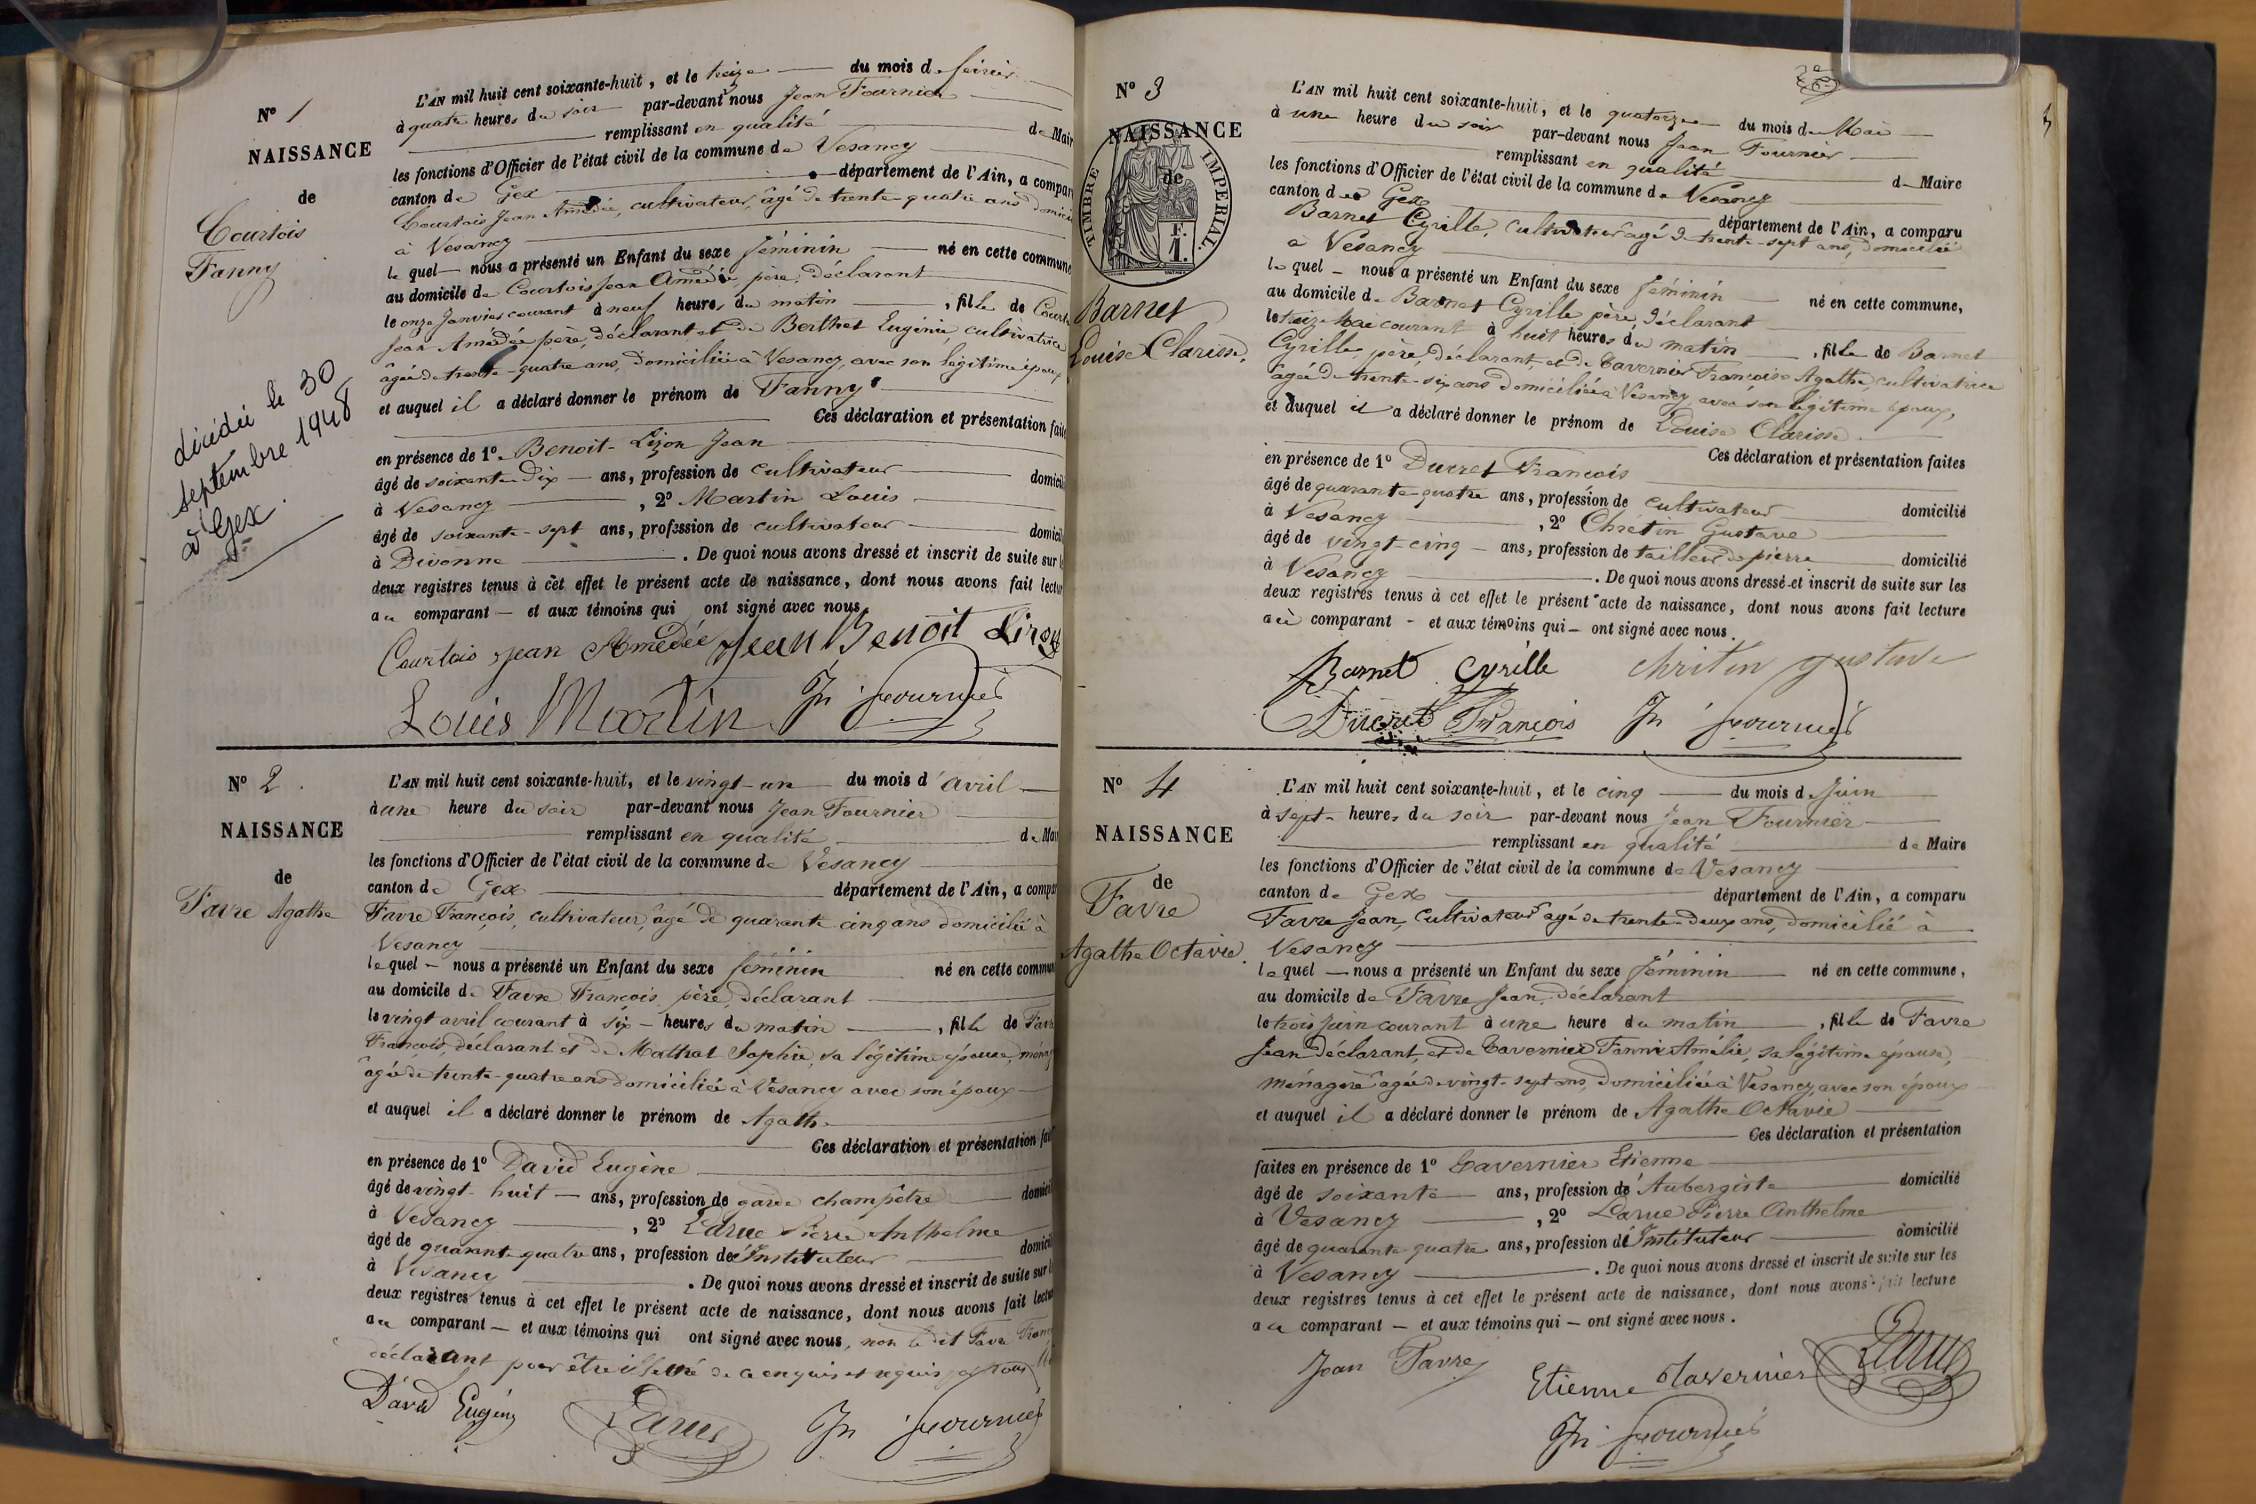 N° 1
NAISSANCE
de
Courtois
Fanny
décédée le 30
septembre 1948
à Gex.
L'AN mil huit cent soixante-huit, et le treize du mois de
à quatre heures du soir par-devant nous Jean Fournier
remplissant en qualité de Maire
les fonctions d'Officier de l'état civil de la commune de Vesancy
canton de Gex département de l'Ain, a compar
Courtois Jean Amédée, cultivateur, âgé de trente quatre ans domici
à Vesancy
lequel nous a présenté un Enfant du sexe féminin né en cette commune
au domicile de Courtois Jean Amédée père, déclarant
le onze Janvier courant à neuf heures du matin, fille de Court
Jean Amédée père, déclarant et de Berthet Eugénie, cultivatrice
âgée de trente-quatre ans, domiciliée à Vesancy, avec son légitime époux
et auquel il a déclaré donner le prénom de Fanny
Ces déclaration et présentation faite
en présence de 1° Benoit-Lizon Jean
âgé de soixante dix ans, profession de cultivateur domicili
à Vesancy, 2° Martin Louis
âgé de soixante-sept ans, profession de cultivateur domicili
à Divonne. De quoi nous avons dressé et inscrit de suite sur l
deux registres tenus à cet effet le présent acte de naissance, dont nous avons fait lectur
au comparant et aux témoins qui ont signé avec nous.
Courtois Jean Amédée Jean Benoit Lizon
Louis Martin Jn Fournier
N° 2.
NAISSANCE
de
Favre Agathe
L'AN mil huit cent soixante-huit, et le vingt-un du mois d'avril
à une heure du soir par-devant nous Jean Fournier
remplissant en qualité de Mai
les fonctions d'Officier de l'état civil de la commune de Vesancy
canton de Gex département de l'Ain, a compar
Favre François, cultivateur, âgé de quarante cinq ans domicilié à
Vesancy
lequel nous a présenté un Enfant du sexe féminin né en cette commun
au domicile de Favre François, père, déclarant
le vingt avril courant à six heures du matin, fille de Favr
François, déclarant et de Mathat Sophie, sa légitime épouse, ménag
âgée de trente-quatre ans domiciliée à Vesancy avec son époux
et auquel il a déclaré donner le prénom de Agathe
Ces déclaration et présentation fai
en présence de 1° David Eugène
âgé de vingt-huit ans, profession de garde champêtre domicil
à Vesancy, 2° Larue Pierre Anthelme
âgé de quarante quatre ans, profession d'Instituteur domicil
à Vesancy. De quoi nous avons dressé et inscrit de suite sur l
deux registres tenus à cet effet le présent acte de naissance, dont nous avons fait lectur
au comparant et aux témoins qui ont signé avec nous, non le dit Favre Franç
déclarant pour être illettré de ce enquis et requis par nous
David Eugène Larue Jn Fournier
N° 3
NAISSANCE
de
TIMBRE IMPERIAL.
F.
1.
Barnet
Louise Clarisse.
L'AN mil huit cent soixante-huit, et le quatorze du mois de Mai
à une heure du soir par-devant nous Jean Fournier
remplissant en qualité de Maire
les fonctions d'Officier de l'état civil de la commune de Vesancy
canton de Gex département de l'Ain, a comparu
Barnet Cyrille, cultivateur âgé de trente-sept ans, domicilié
à Vesancy
lequel nous a présenté un Enfant du sexe féminin né en cette commune,
au domicile de Barnet Cyrille père, déclarant
le treize Mai courant à huit heures du matin, fille de Barnet
Cyrille, père, déclarant, et de Tavernier Françoise Agathe, cultivatrice
âgée de trente-six ans domiciliée à Vesancy, avec son légitime époux,
et auquel il a déclaré donner le prénom de Louise Clarisse
Ces déclaration et présentation faites
en présence de 1° Ducret François
âgé de quarante-quatre ans, profession de cultivateur domicilié
à Vesancy, 2° Chretin Gustave
âgé de vingt-cinq ans, profession de tailleur de pierre domicilié
à Vesancy. De quoi nous avons dressé et inscrit de suite sur les
deux registres tenus à cet effet le présent acte de naissance, dont nous avons fait lecture
au comparant et aux témoins qui ont signé avec nous.
Barnet Cyrille chritin gustave
Ducret François Jn Fournier
N° 4
NAISSANCE
de
Favre
Agathe Octavie.
L'AN mil huit cent soixante-huit, et le cinq du mois de Juin
à sept heures du soir par-devant nous Jean Fournier
remplissant en qualité de Maire
les fonctions d'Officier de l'état civil de la commune de Vesancy
canton de Gex département de l'Ain, a comparu
Favre Jean, cultivateur âgé de trente-deux ans, domicilié à
Vesancy
lequel nous a présenté un Enfant du sexe féminin né en cette commune,
au domicile de Favre Jean, déclarant
le trois Juin courant à une heure du matin, fille de Favre
Jean déclarant, et de Tavernier Fannie Amélie, sa légitime épouse,
ménagère âgée de vingt-sept ans, domiciliée à Vesancy, avec son époux
et auquel il a déclaré donner le prénom de Agathe Octavie
Ces déclaration et présentation
faites en présence de 1° Tavernier Etienne
âgé de soixante ans, profession d'Aubergiste domicilié
à Vesancy, 2° Larue Pierre Anthelme
âgé de quarante quatre ans, profession d'Instituteur domicilié
à Vesancy. De quoi nous avons dressé et inscrit de suite sur les
deux registres tenus à cet effet le présent acte de naissance, dont nous avons fait lecture
au comparant et aux témoins qui ont signé avec nous.
Jean Favre Etienne Tavernier Larue
Jn Fournier